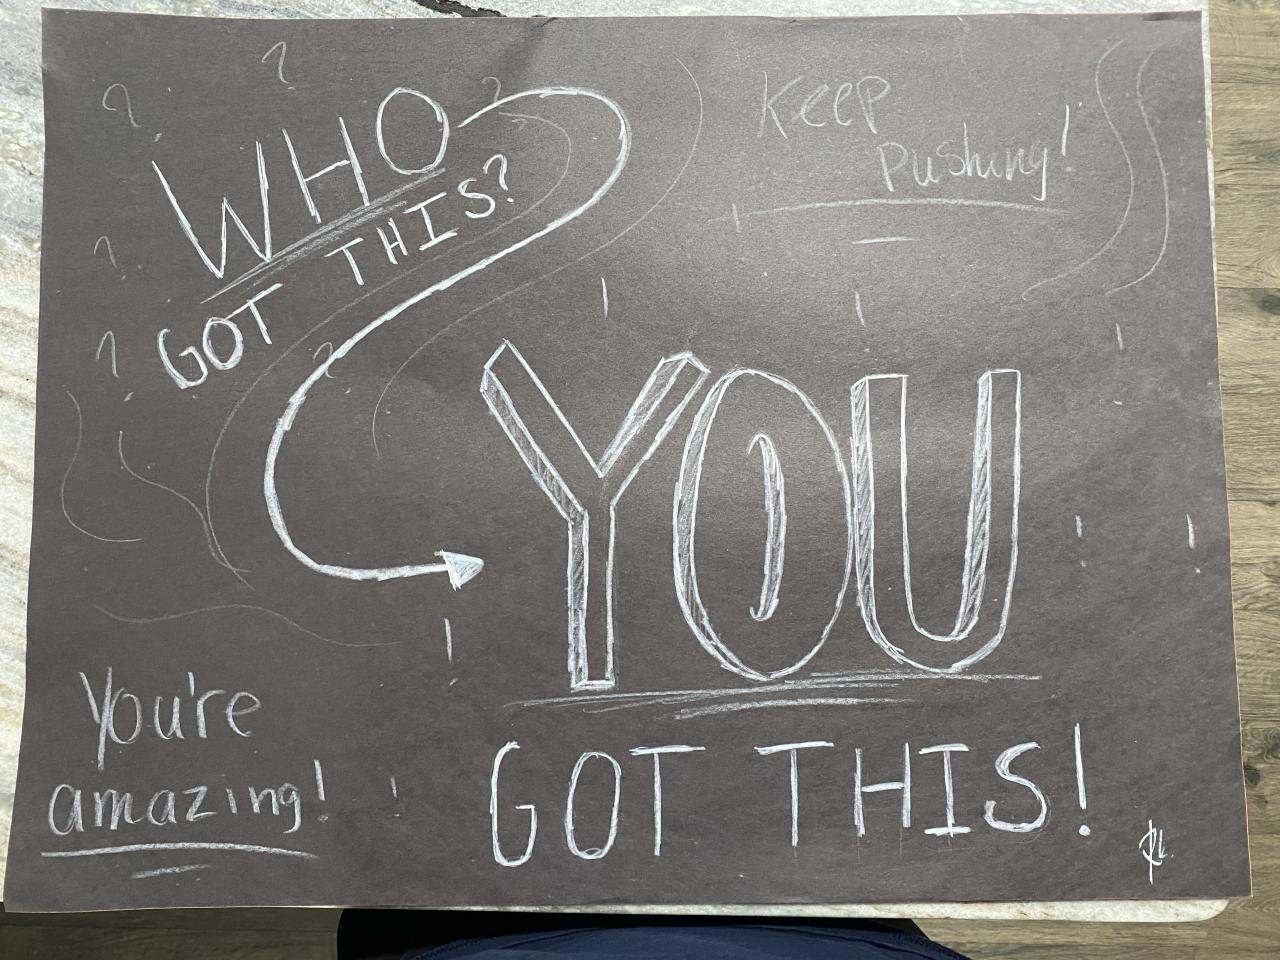 WHO
GOT THIS?
Keep
pushing!
YOU
GOT THIS!
You're
amazing!